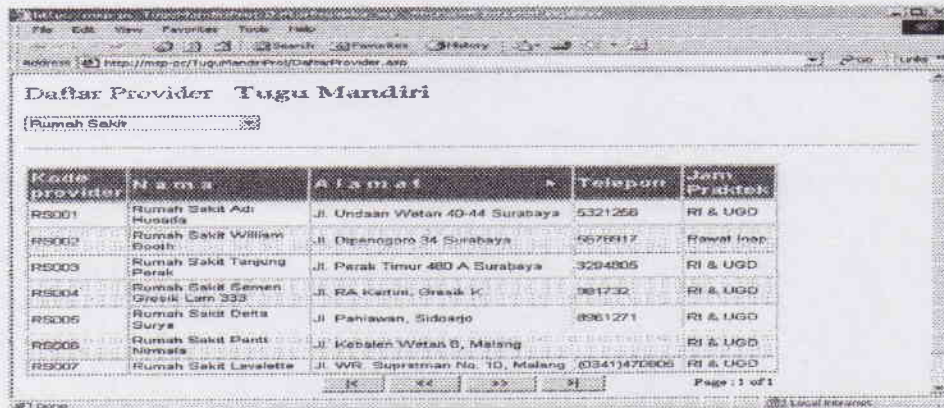 File Edit View Favorites Tools Help
Search Favorites History
Address http://msp-pc/TuguMandiriProt/DaftarProvider.asp Go Links
Daftar Provider Tugu Mandiri
Rumah Sakit
Kode provider Nama Alamat Telepon Jam Praktek
RS001 Rumah Sakit Adi Husada Jl. Undaan Wetan 40-44 Surabaya 5321256 RI & UGD
RS002 Rumah Sakit William Booth Jl. Diponegoro 34 Surabaya 5678917 Rawat Inap
RS003 Rumah Sakit Tanjung Perak Jl. Perak Timur 480 A Surabaya 3294805 RI & UGD
RS004 Rumah Sakit Semen Gresik Lam 333 Jl. RA Kartini, Gresik K 981732 RI & UGD
RS005 Rumah Sakit Delta Surya Jl. Pahlawan, Sidoarjo 8961271 RI & UGD
RS006 Rumah Sakit Panti Nirmala Jl. Kebalen Wetan 8, Malang RI & UGD
RS007 Rumah Sakit Lavalette Jl. WR. Supratman No. 10, Malang (0341)470805 RI & UGD
|< << >> >| Page : 1 of 1
Done Local intranet